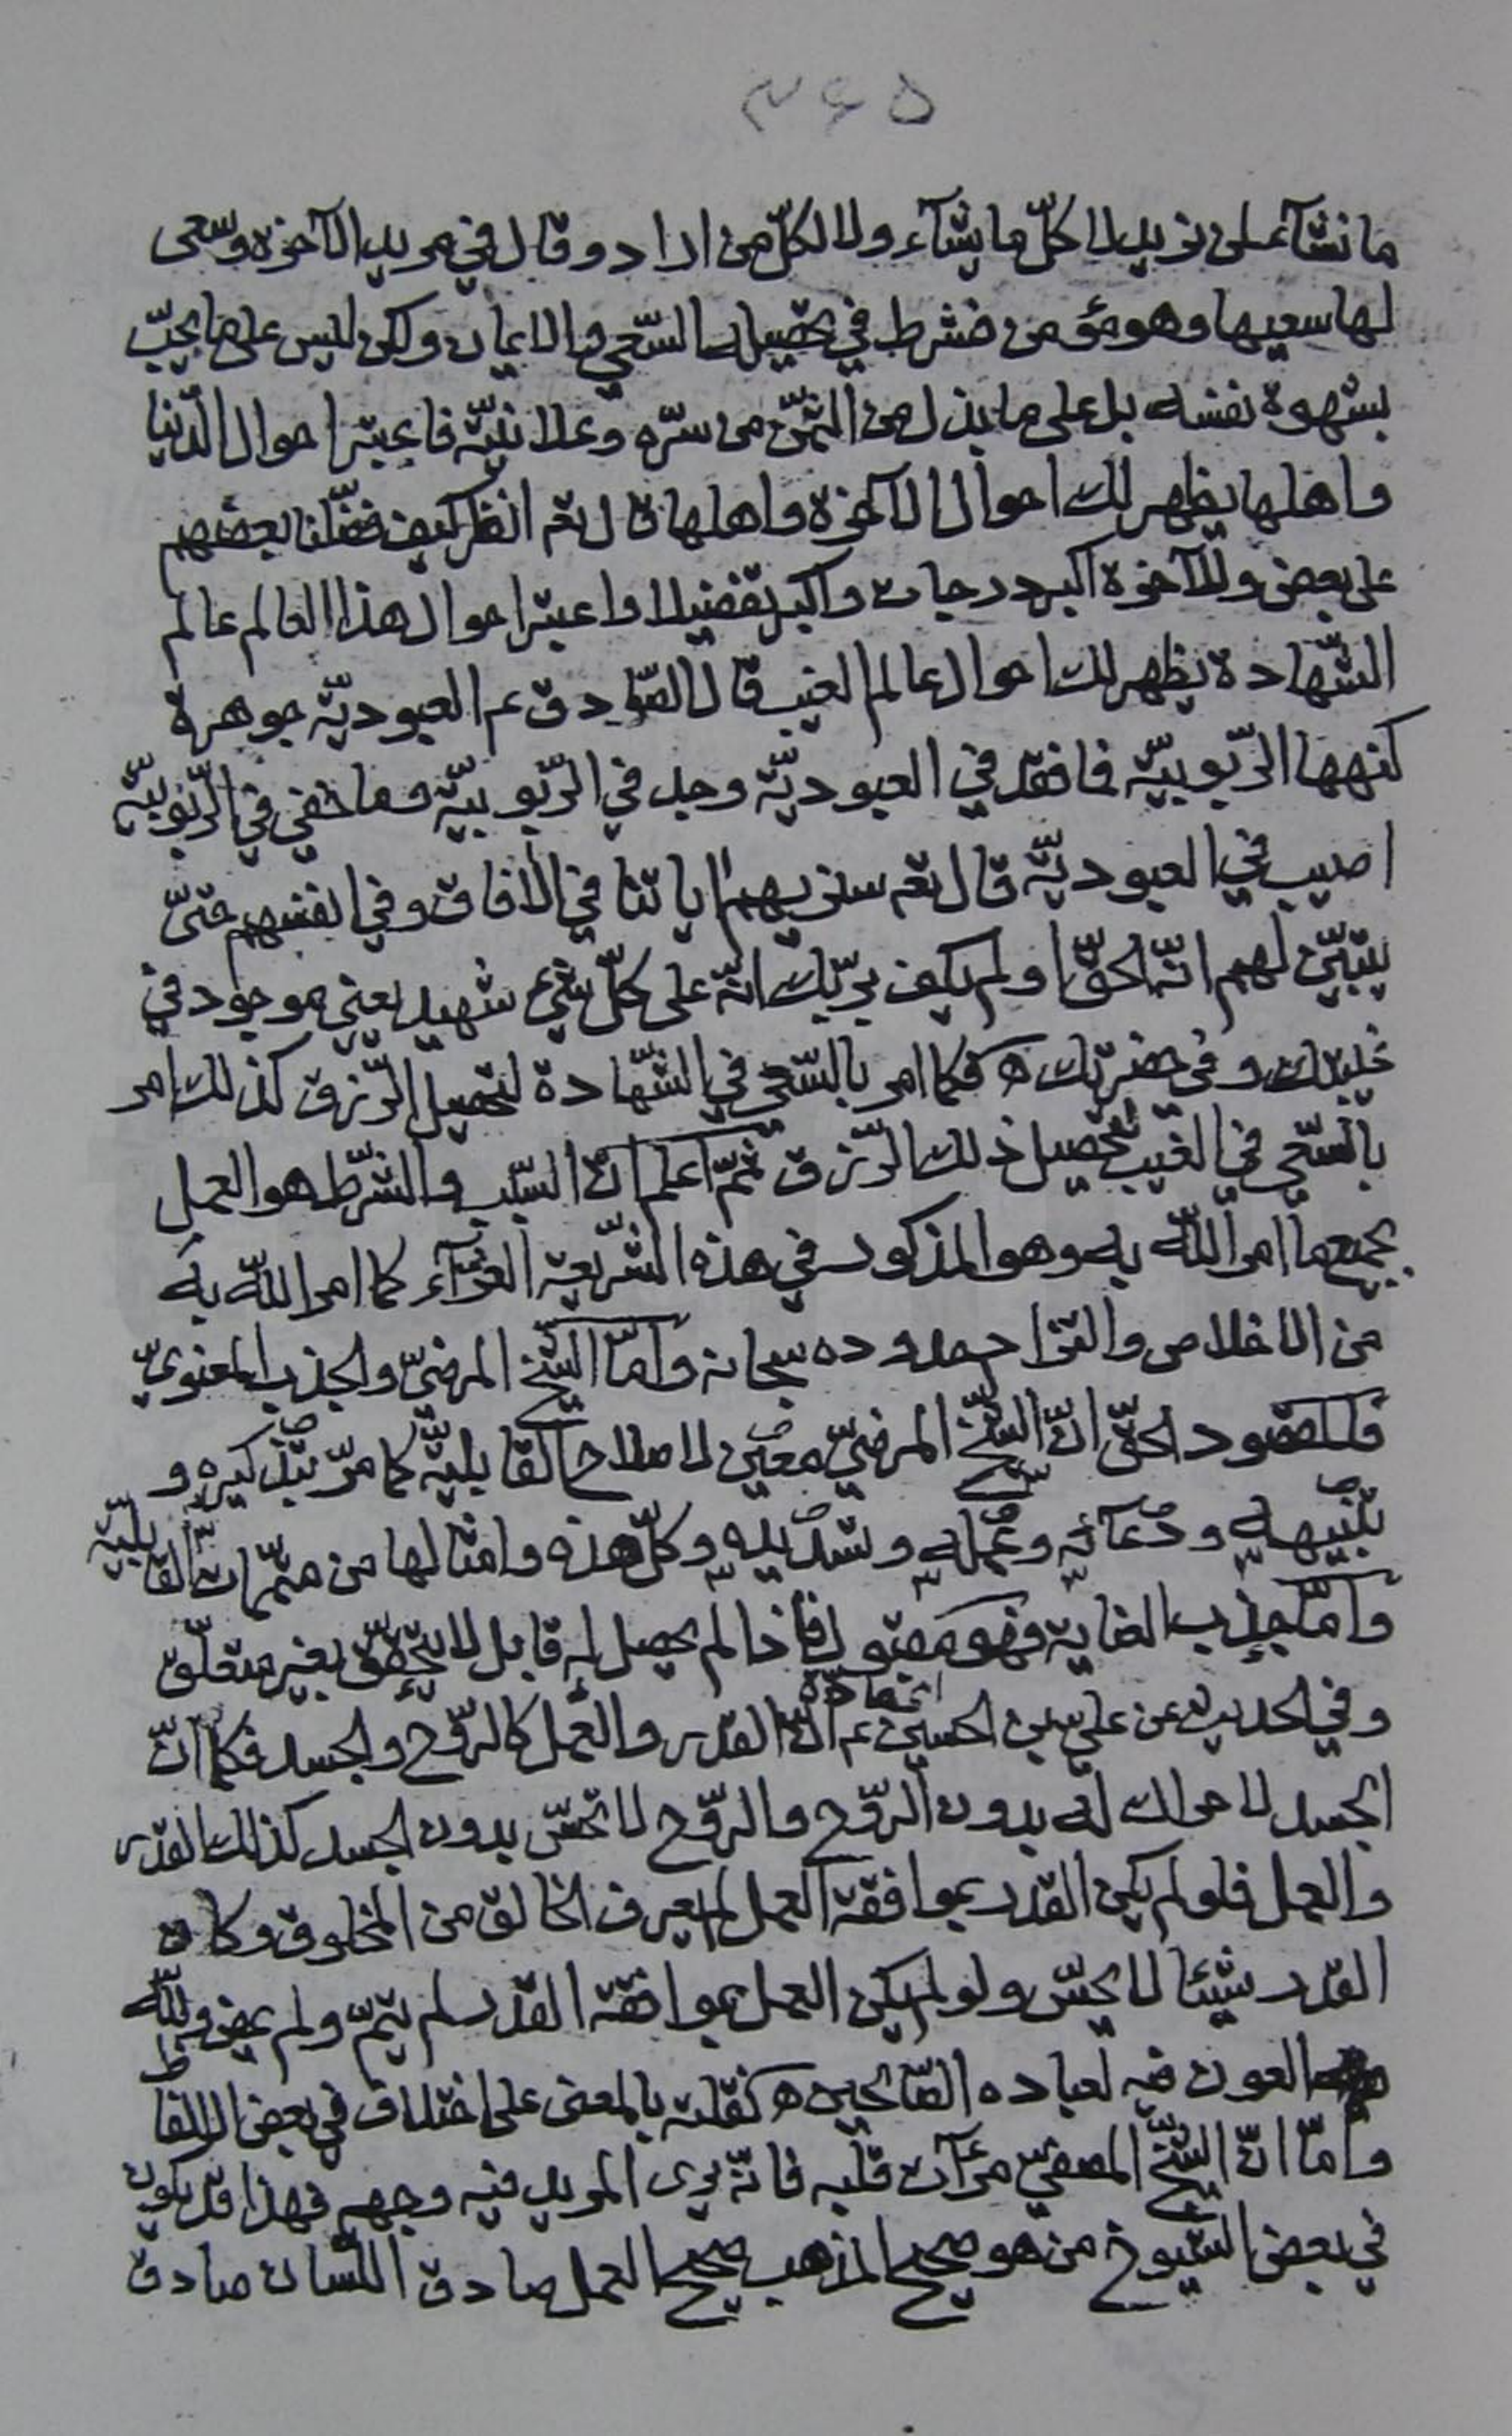 ۳۶۵
ما نشآء لمن نريد لا كلّ ما يشآء ولا لكلّ من اراد وقال في مريد الآخرة وسعى
لها سعيها وهو مؤمن فشرط في تحصيلها السّعي والايمان ولكن ليس على ما يحبّ
بشهوة نفسه بل على ما يبذل من الثمّن من سرّه وعلانيّته فاعتبر احوال الدّنيا
واهلها يظهر لك احوال الآخرة واهلها قال تعم انظر كيف فضّلنا بعضهم
على بعض وللآخرة اكبر درجات واكبر تفضيلا واعتبر احوال هذا العالم عالم
الشّهادة يظهر لك احوال عالم الغيب قال الصّادق عم العبوديّة جوهرة
كنهها الرّبوبيّة فما فقد في العبوديّة وجد في الرّبوبيّة وما خفي في الرّبوبيّة
اصيب في العبوديّة قال تعم سنريهم اياتنا في الآفاق وفي انفسهم حتىّ
يتبيّن لهم انّه الحقّ اولم يكف بربّك انّه على كلّ شيء شهيد يعني موجود في
غيبتك وفي حضرتك ه فكما امر بالسّعي في الشّهادة لتحصيل الرّزق كذلك امر
بالسّعي في الغيب لتحصيل ذلك الرّزق ثمّ اعلم انّ السّبب والشّرط هو العمل
بجميع ما امر اللّه به وهو المذكور في هذه الشّريعة الغرّآء كما امر اللّه به
من الاخلاص والتزام حدوده سبحانه وامّا الشّيخ المرضيّ والجذب المعنويّ
فالمقصود الحقّ انّ الشّيخ المرضيّ معين لاصلاح القابليّة كما مرّ بتذكيره و
بتنبيهه ودعآئه وعمله وتسديده وكلّ هذه وامثالها من متمّمات القابليّة
وامّا جذب العناية فهو مقبول فاذا لم يحصل له قابل لا يتحقّق بغير متعلّق
وفي الحديث عن عليّ بن الحسين عم انّ القدر والعمل كالرّوح والجسد فكما انّ
الجسد لا حراك له بدون الرّوح والرّوح لا تحسّ بدون الجسد كذلك القدر
والعمل فلو لم يكن القدر بموافقة العمل لم يعرف الخالق من المخلوق وكان
القدر شيئا لا يحسّ ولو لم يكن العمل بموافقة القدر لم يتمّ ولم يمض وللّه
العون فيه لعباده الصّالحين ه نقلته بالمعنى على اختلاف في بعض الالفاظ
وامّا انّ الشّيخ المصفيّ مرءآت قلبه فانّه يرى المريد فيه وجهه فهذا قد يكون
في بعض الشيوخ من هو صحيح المذهب صحيح العمل صادق اللّسان صادق